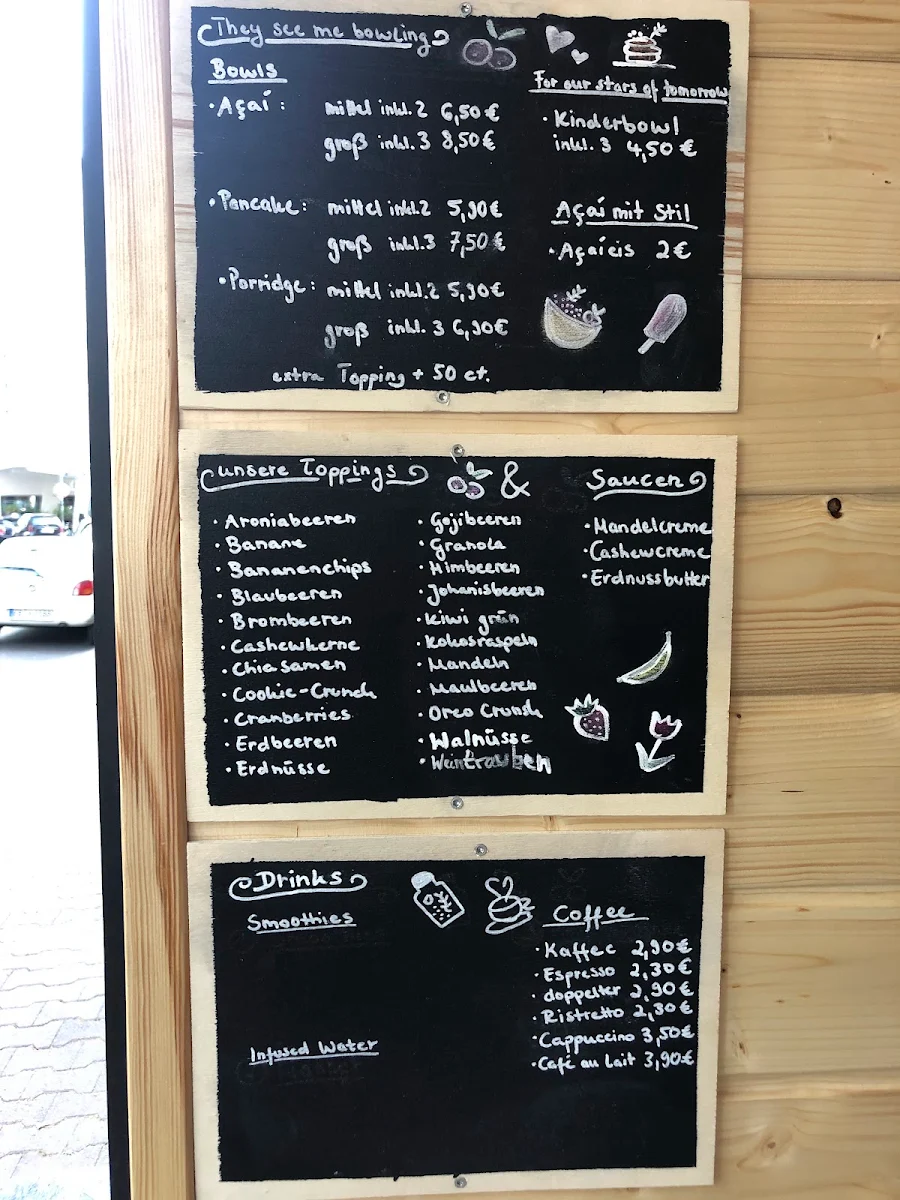 They see me bowling
Bowls
· Açaí : mittel inkl. 2 6,50 €
groß inkl. 3 8,50 €
· Pancake : mittel inkl. 2 5,90 €
groß inkl. 3 7,50 €
· Porridge : mittel inkl. 2 5,90 €
groß inkl. 3 6,90 €
extra Topping + 50 ct.
For our stars of tomorrow
· Kinderbowl
inkl. 3 4,50 €
Açaí mit Stil
· Açaíeis 2 €
unsere Toppings
&
Saucen
· Aroniabeeren
· Banane
· Bananenchips
· Blaubeeren
· Brombeeren
· Cashewkerne
· Chia Samen
· Cookie-Crunch
· Cranberries
· Erdbeeren
· Erdnüsse
· Gojibeeren
· Granola
· Himbeeren
· Johanisbeeren
· Kiwi grün
· Kokosraspeln
· Mandeln
· Maulbeeren
· Oreo Crunch
· Walnüsse
· Weintrauben
· Mandelcreme
· Cashewcreme
· Erdnussbutter
Drinks
Smoothies
Infused Water
Coffee
· Kaffee 2,90 €
· Espresso 2,30 €
· doppelter 2,90 €
· Ristretto 2,30 €
· Cappuccino 3,50 €
· Café au Lait 3,90 €